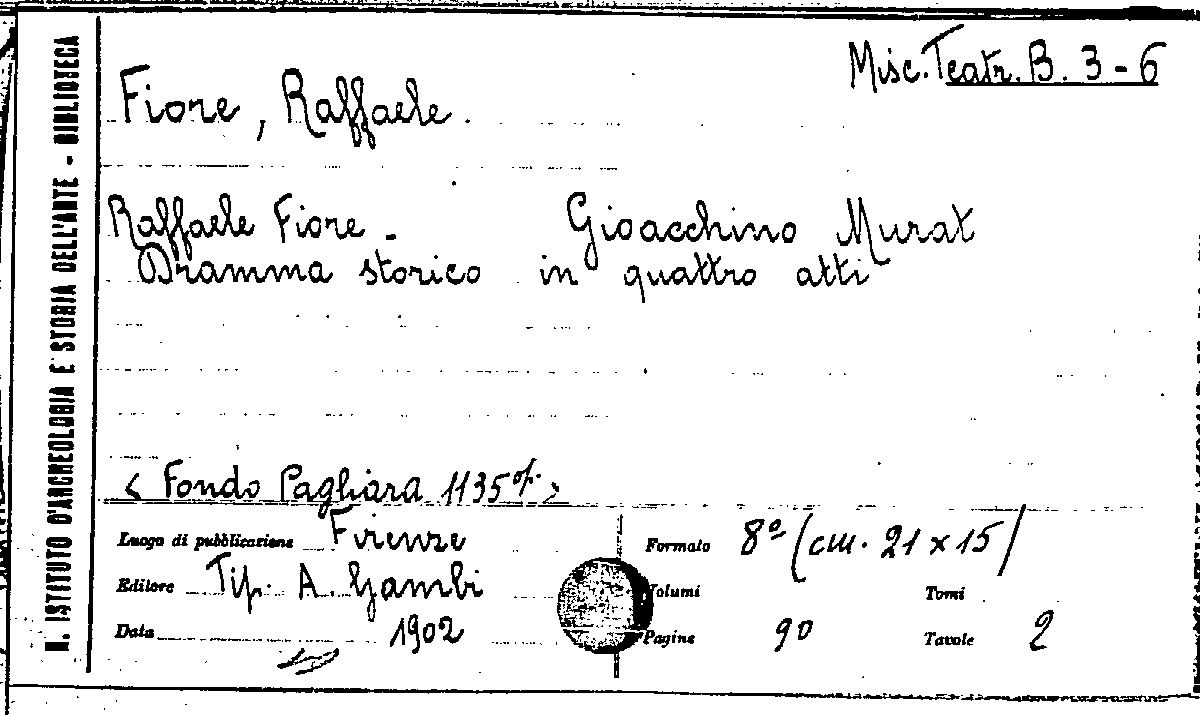 R. ISTITUTO D'ARCHEOLOGIA E STORIA DELL'ARTE - BIBLIOTECA
Misc. Teatr. B. 3-6
Fiore, Raffaele.
Raffaele Fiore - Gioacchino Murat
Dramma storico in quattro atti
< Fondo Pagliara 1135 >
Luogo di pubblicazione Firenze
Formato 8º (cm. 21 x 15)
Editore Tip. A. Gambi
Volumi Tomi
Data 1902
Pagine 90 Tavole 2